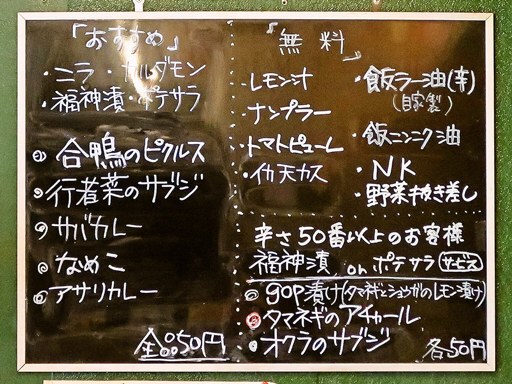 「おすすめ」
・ニラ ・カルダモン
・福神漬 ・ポテサラ
合鴨のピクルス
行者菜のサブジ
サバカレー
なめこ
アサリカレー
全品50円
「無料」
・レモン汁
・ナンプラー
・トマトピューレ
・イカ天カス
・飯ラー油(辛)
(自家製)
・飯ニンニク油
・NK
・野菜抜き差し
辛さ50番以上のお客様
福神漬 or ポテサラ サービス
gop漬け(タマネギとショウガのレモン漬け)
タマネギのアチャール
オクラのサブジ
各50円